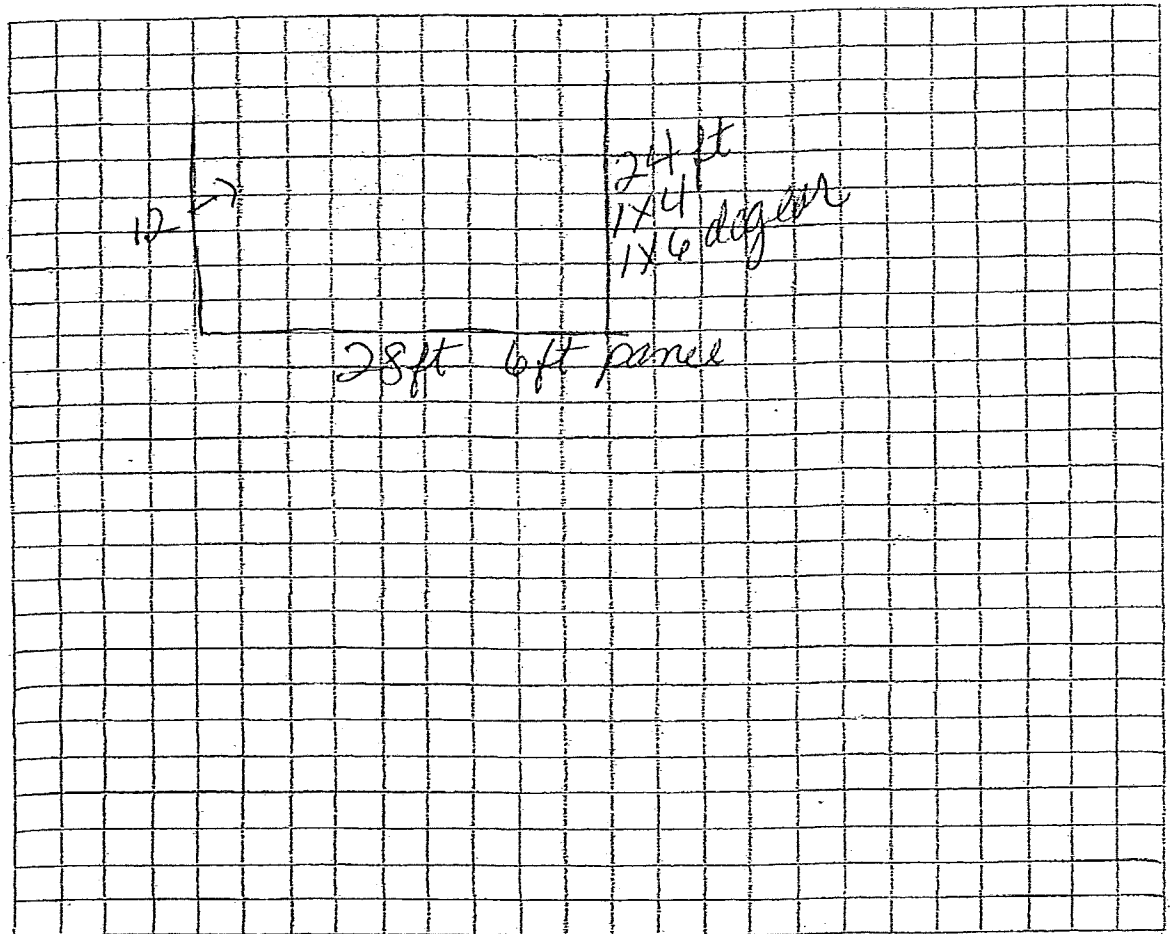 24 ft
1x4
12
1x6 dog ear
28ft 6ft panel